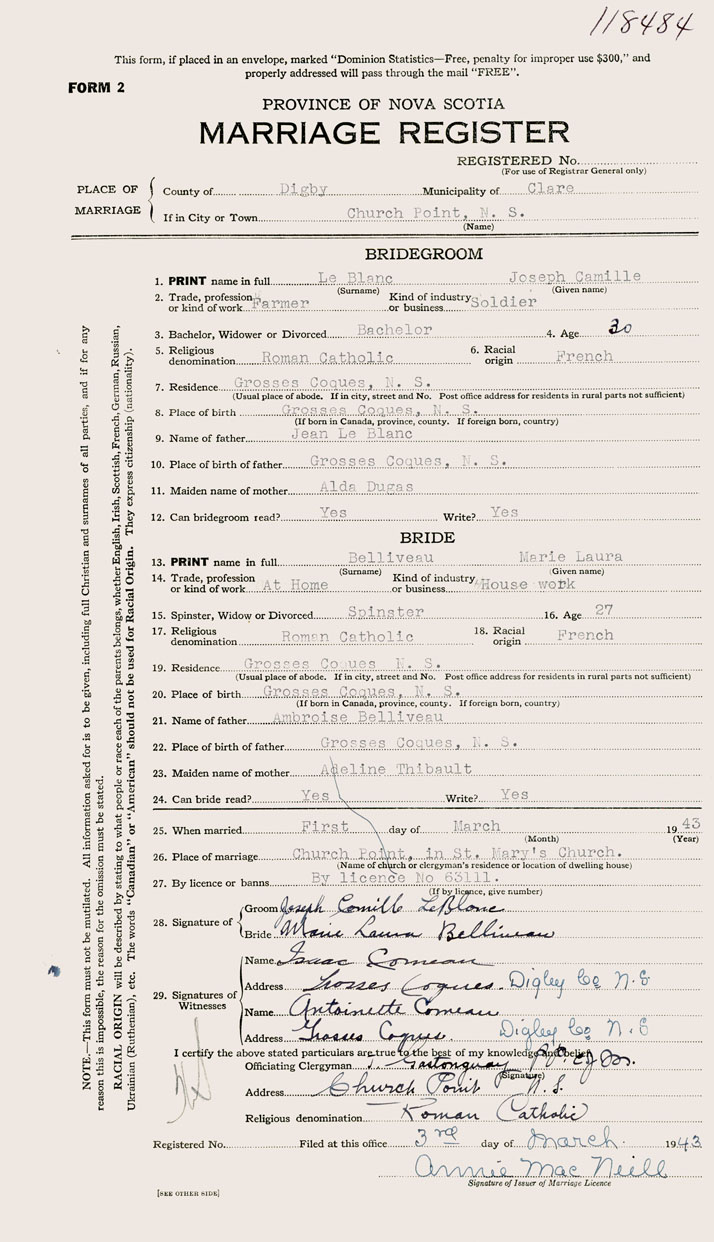 118484
This form, if placed in an envelope, marked "Dominion Statistics—Free, penalty for improper use $300," and
properly addressed will pass through the mail "FREE".
FORM 2
PROVINCE OF NOVA SCOTIA
MARRIAGE REGISTER
REGISTERED No.
(For use of Registrar General only)
PLACE OF MARRIAGE
County of Digby Municipality of Clare
If in City or Town Church Point, N. S.
(Name)
BRIDEGROOM
1. PRINT name in full Le Blanc Joseph Camille
(Surname) (Given name)
2. Trade, profession or kind of work Farmer Kind of industry or business Soldier
3. Bachelor, Widower or Divorced Bachelor 4. Age 30
5. Religious denomination Roman Catholic 6. Racial origin French
7. Residence Grosses Coques, N. S.
(Usual place of abode. If in city, street and No. Post office address for residents in rural parts not sufficient)
8. Place of birth Grosses Coques, N. S.
(If born in Canada, province, county. If foreign born, country)
9. Name of father Jean Le Blanc
10. Place of birth of father Grosses Coques, N. S.
11. Maiden name of mother Alda Dugas
12. Can bridegroom read? Yes Write? Yes
BRIDE
13. PRINT name in full Belliveau Marie Laura
(Surname) (Given name)
14. Trade, profession or kind of work At Home Kind of industry or business House work
15. Spinster, Widow or Divorced Spinster 16. Age 27
17. Religious denomination Roman Catholic 18. Racial origin French
19. Residence Grosses Coques N. S.
(Usual place of abode. If in city, street and No. Post office address for residents in rural parts not sufficient)
20. Place of birth Grosses Coques, N. S.
(If born in Canada, province, county. If foreign born, country)
21. Name of father Ambroise Belliveau
22. Place of birth of father Grosses Coques, N. S.
23. Maiden name of mother Adeline Thibault
24. Can bride read? Yes Write? Yes
25. When married First day of March 1943
(Month) (Year)
26. Place of marriage Church Point, in St. Mary's Church.
(Name of church or clergyman's residence or location of dwelling house)
27. By licence or banns By licence No 63111.
(If by licence, give number)
28. Signature of Groom Joseph Camille LeBlanc
Bride Marie Laura Belliveau
29. Signatures of Witnesses
Name Isaac Comeau
Address Grosses Coques. Digby Co N.S
Name Antoinette Comeau
Address Grosses Coques. Digby Co N.S
I certify the above stated particulars are true to the best of my knowledge and belief.
Officiating Clergyman Gastonguay
(Signature)
Address Church Point N.S.
Religious denomination Roman Catholic
Registered No. Filed at this office 3rd day of March. 1943
Annie Mac Neill
Signature of Issuer of Marriage Licence
[SEE OTHER SIDE]
NOTE.—This form must not be mutilated. All information asked for is to be given, including full Christian and surnames of all parties, and if for any
reason this is impossible, the reason for the omission must be stated.
RACIAL ORIGIN will be described by stating to what people or race each of the parents belongs, whether English, Irish, Scottish, French, German, Russian,
Ukrainian (Ruthenian), etc. The words "Canadian" or "American" should not be used for Racial Origin. They express citizenship (nationality).